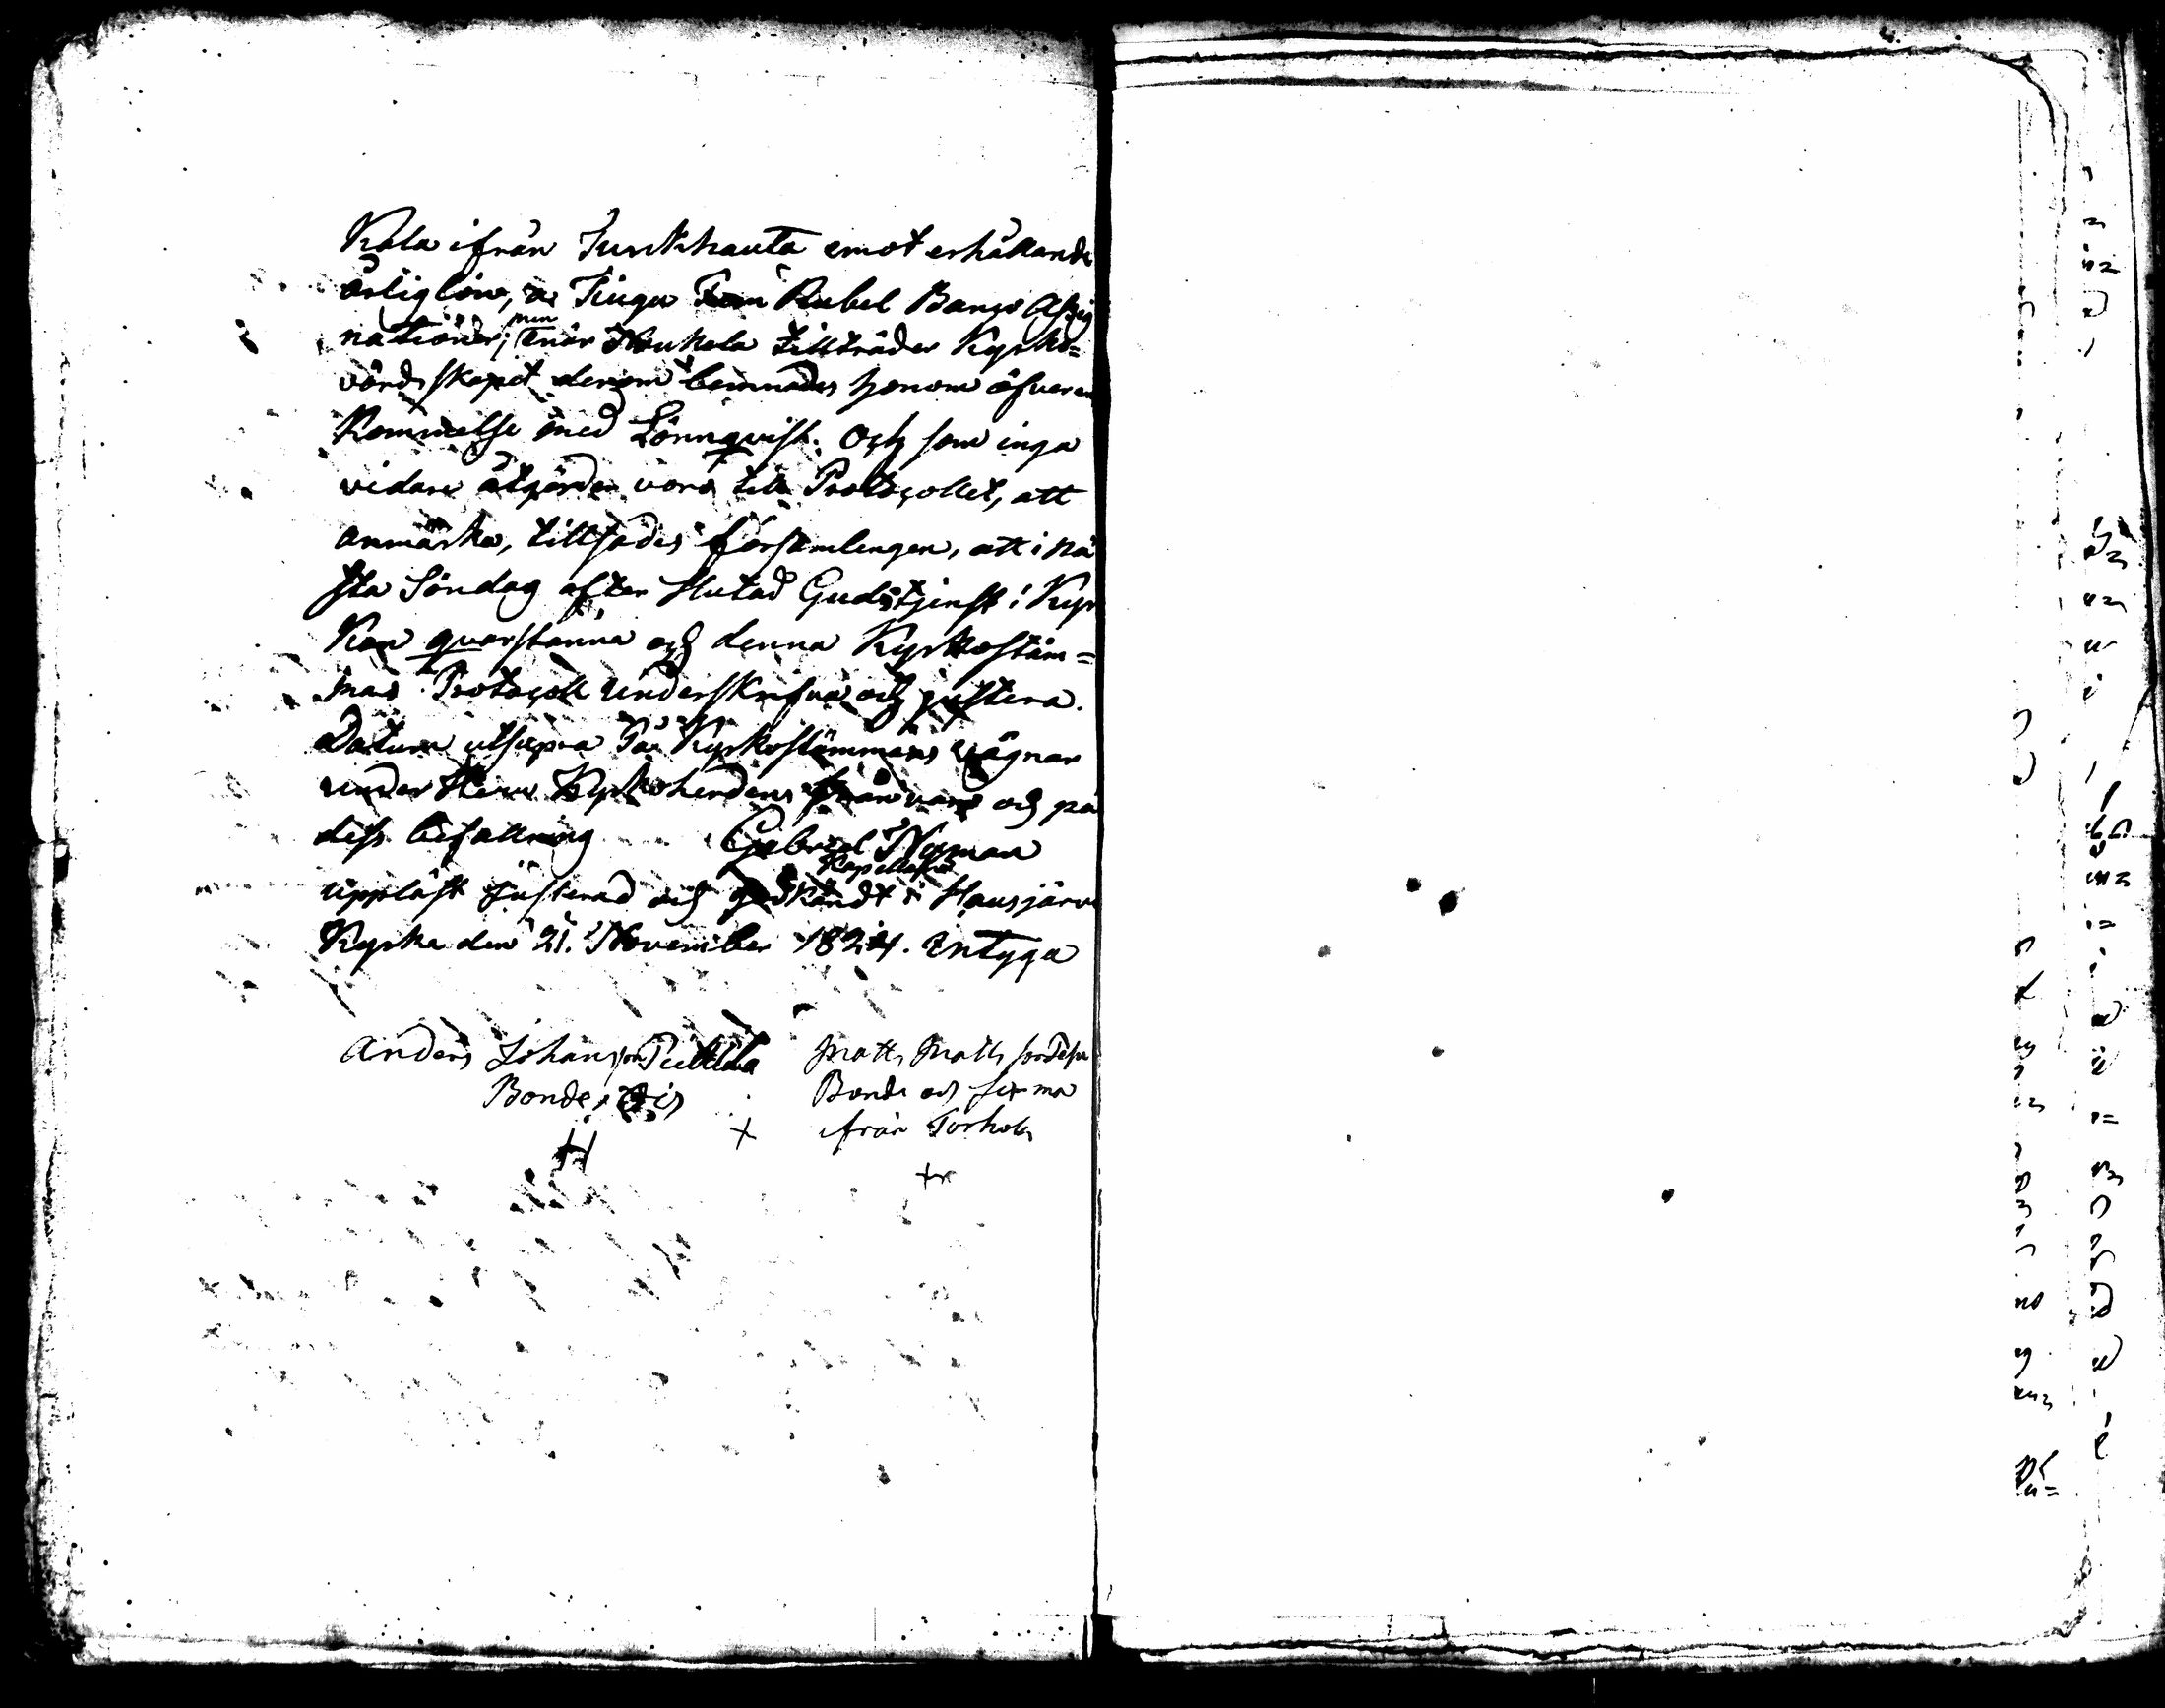 Kala ifrån Turkhauta emot erhållande
årlig lön, a Tiugu Fem Rubel Banco Assig
nationer; men enär Noukala tillträder Kyrko=
vårdskapet derom lemnades honom öfverens
Kommelse med Lönnqvist. Och som inga
vidare åtgärder voro till Protocollet, att
anmärka, tillsades församlingen, att i nä
sta Söndag efter slutad Gudstjenst i Kyr
Kan qvarstanna och denna Kyrkostäm=
mas Protocoll underskrifva och justera.
Datum utsupra På Kyrkostämmans vägnar
under Herr Kyrkoherdens frånvaro och på
dess befallning Gabriel Nyman
Kapellan
uppläst justerad och godkändt i Hausjärvi
Kyrka den 21. November 1824. Intyga
Anders Johansson Puttila Matts Matts son
Bonde Bonde och
H + ifrån Torhola
+